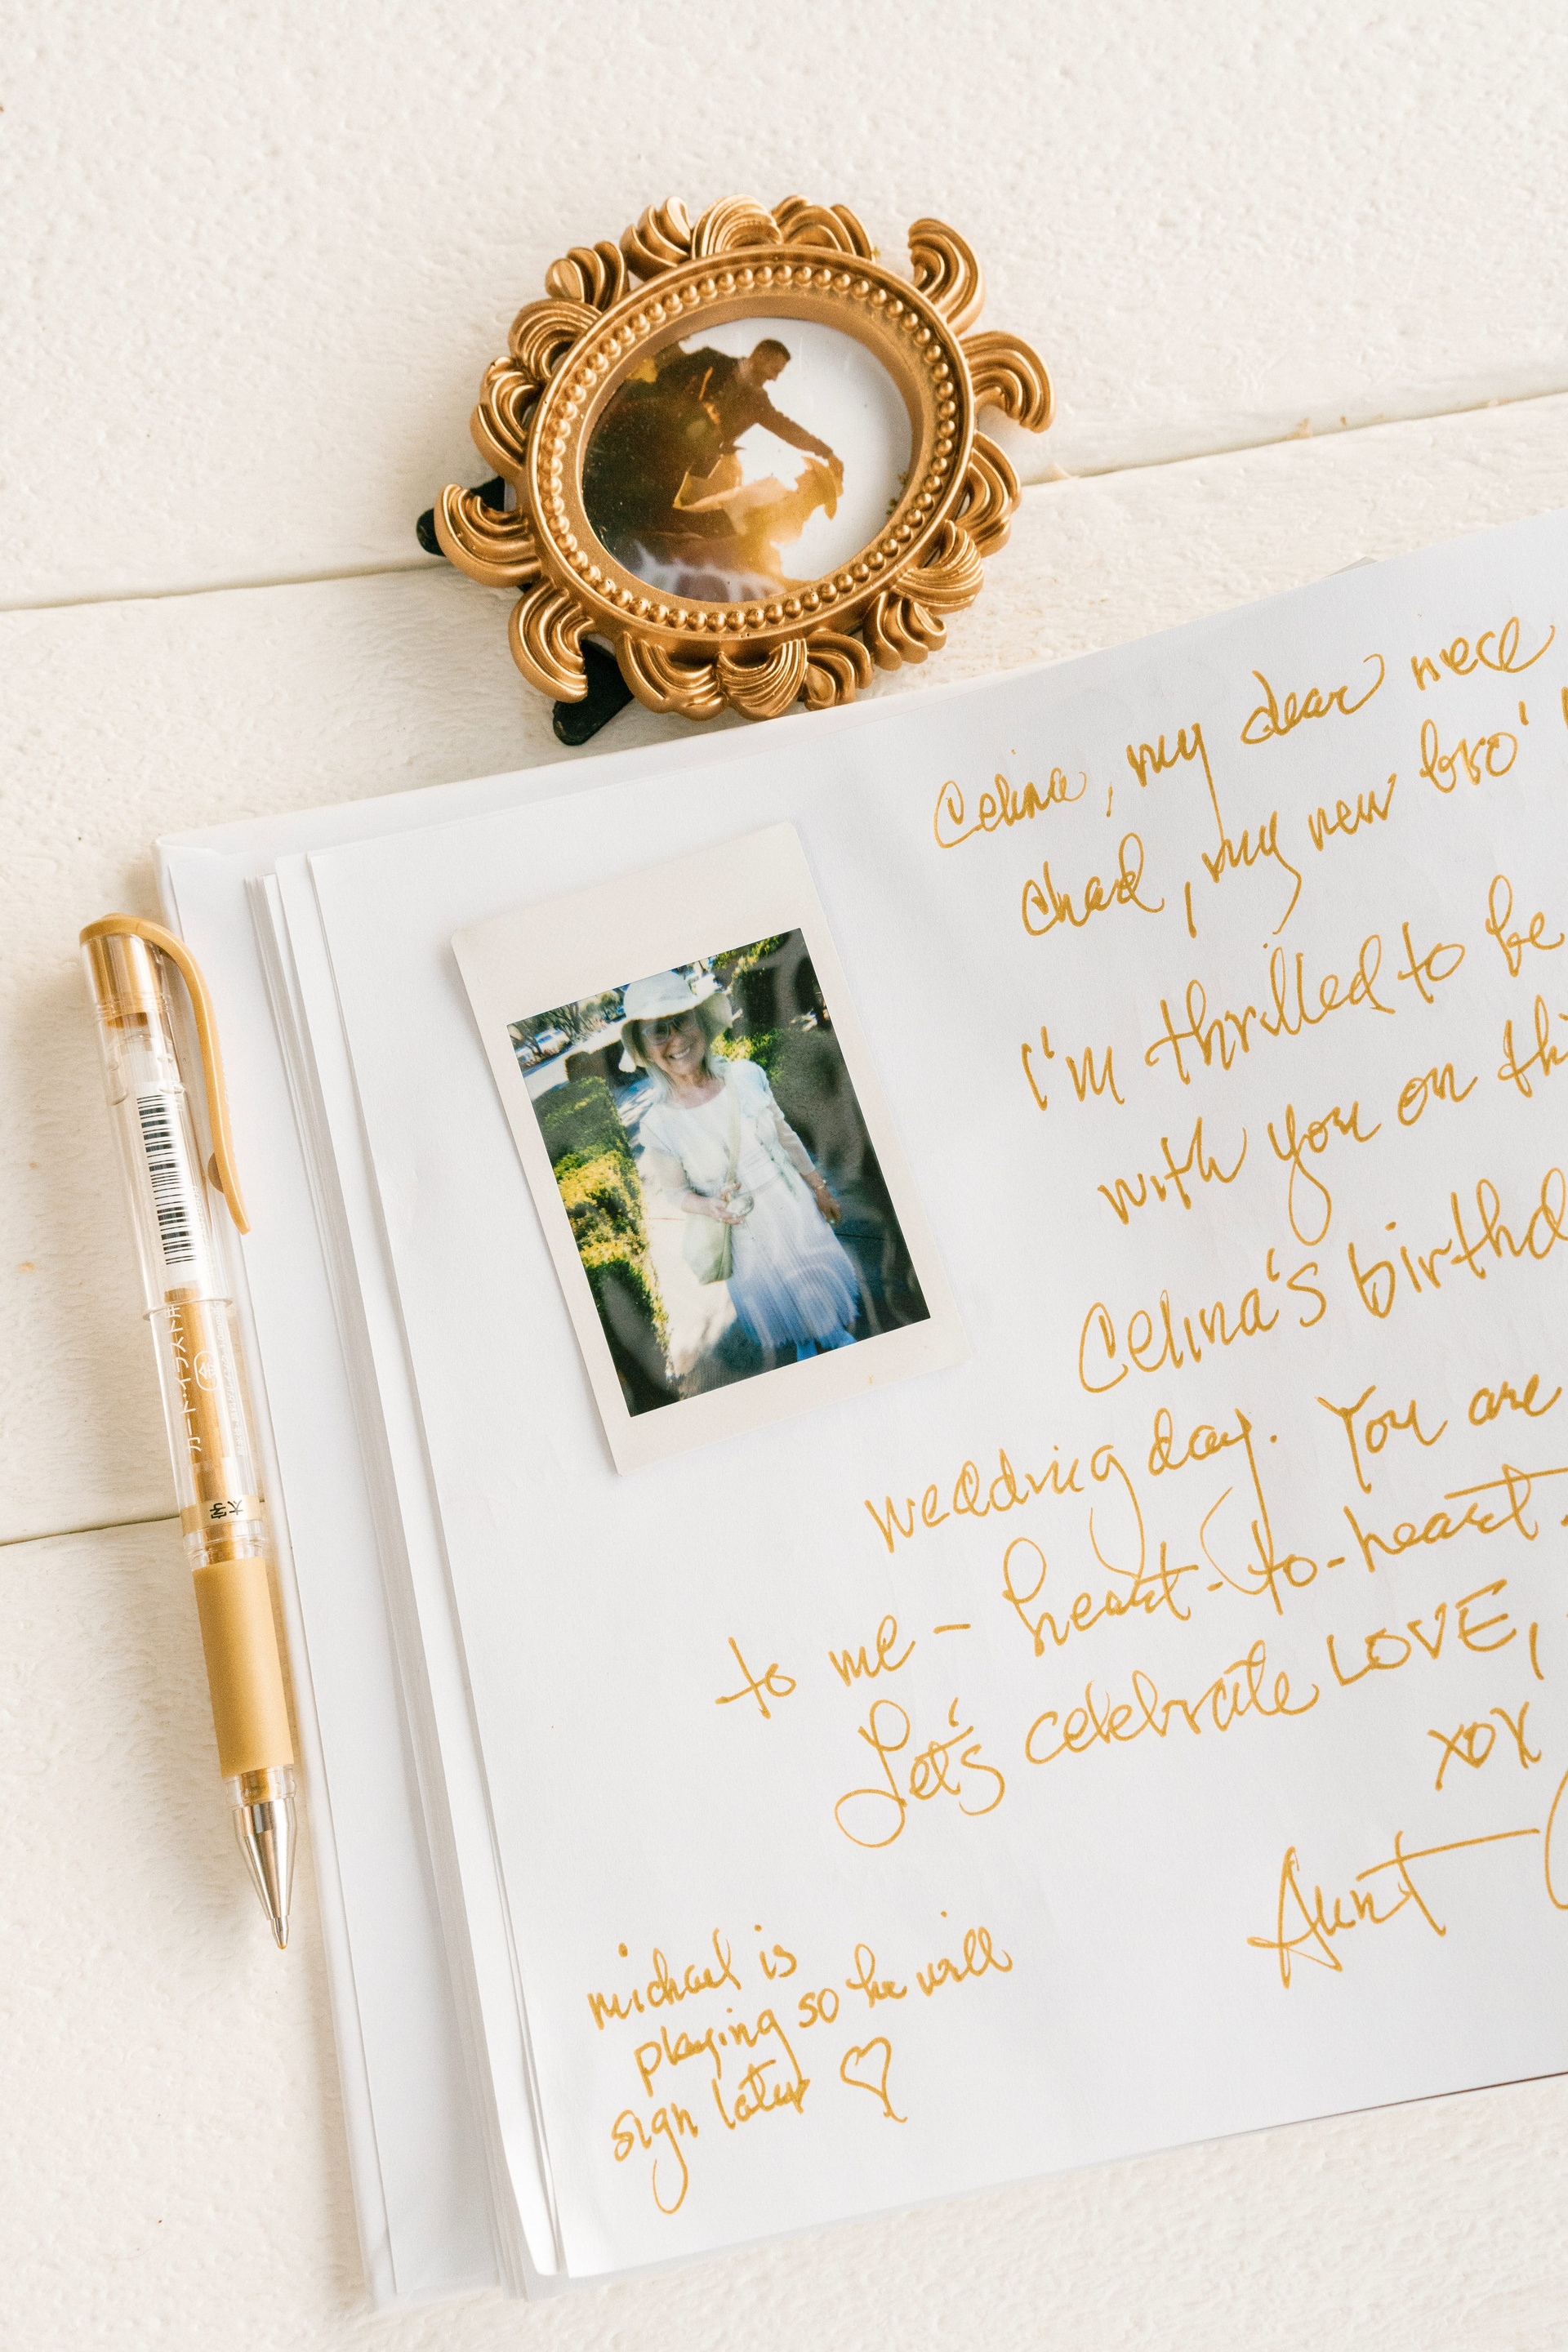 Celina, my dear niece
Chad, my new bro'
I'm thrilled to be
with you on
Celina's
wedding day. You are
to me - heart-to-heart.
Let's celebrate LOVE,
xox
Aunt
michael is
playing so he will
sign later ♡
カード・イラスト用
金
太字